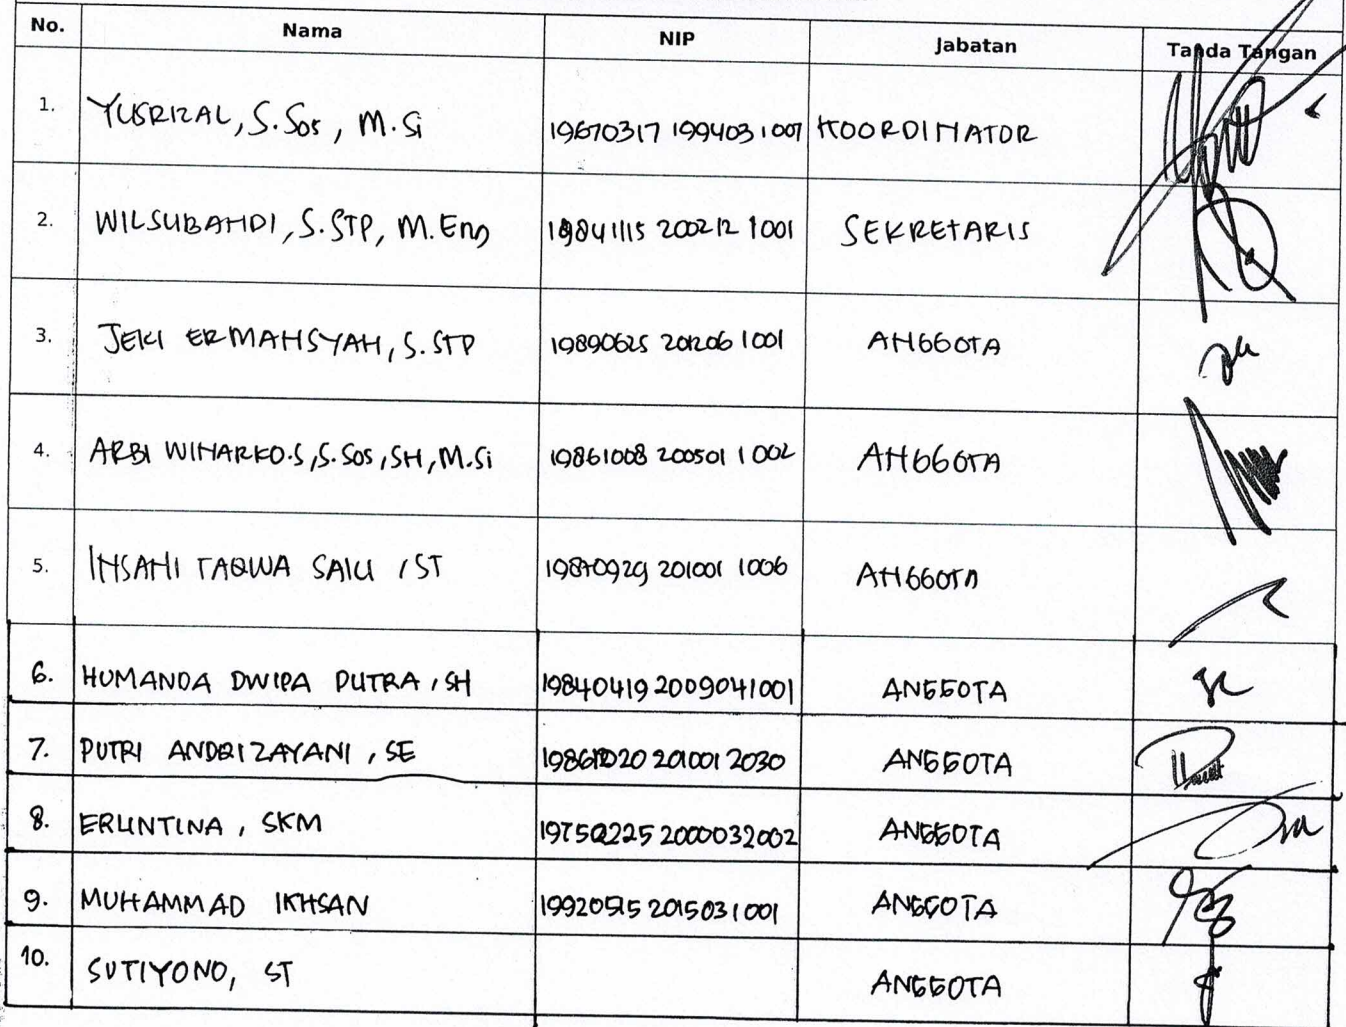 No. Nama NIP Jabatan Tanda Tangan
1. YUSRIZAL, S.Sos, M.Si 19670317 199403 1 007 KOORDINATOR
2. WILSUBANDI, S.STP, M.Eng 19841115 200212 1 001 SEKRETARIS
3. JEKI ERMANSYAH, S.STP 19890625 201206 1 001 ANGGOTA
4. ARBI WINARKO.S, S.Sos, SH, M.Si 19861008 200501 1 002 ANGGOTA
5. TAQWA , ST 19870929 201001 1006 ANGGOTA
6. HUMANDA DWIPA PUTRA, SH 19840419 2009041001 ANGGOTA
7. PUTRI ANDRIZAYANI, SE 201001 2030 ANGGOTA
8. ERLINTINA, SKM 19750225 2000032002 ANGGOTA
9. MUHAMMAD IKHSAN 19920515 2015031001 ANGGOTA
10. SUTIYONO, ST ANGGOTA